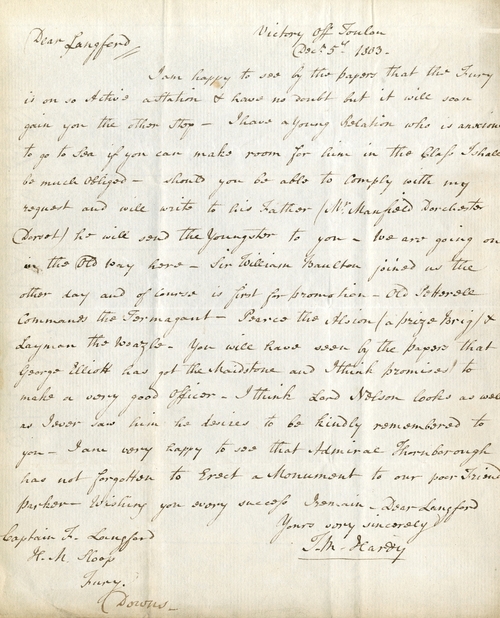 Victory Off Toulon
Dear Langford Decr. 5th. 1803-
I am happy to see by the papers that the Fury
is on so Active a Station & have no doubt but it will soon
gain you the other Step - I have a Young Relation who is anxious
to go to Sea if you can make room for him in the Class I shall
be much obliged - should you be able to comply with my
request and will write to his Father (Mr. Manfield Dorchester
Dorset) he will send the Youngster to you - We are going on
in the Old way here - Sir William Boulton joined us the
other day and of course is first for promotion - Old Petterell
Commands the Termagant - Pearce the Alcion (a prize Brig) &
Layman the Weazle - You will have seen by the papers that
George Elliott has got the Maidstone and I think promises to
make a very good Officer - I think Lord Nelson looks as well
as I ever saw him he desires to be kindly remembered to
you - I am very happy to see that Admiral Thornborough
has not forgotten to Erect a Monument to our poor Friend
Parker - Wishing you every success Remain - Dear Langford
Yours very sincerely
T. M. Hardy
Captain F. Langford
H. M. Sloop
Fury.
Downs -